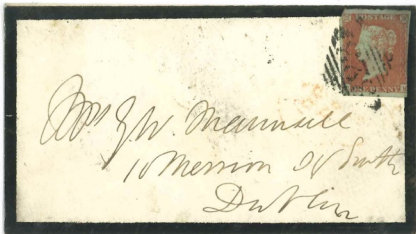 POSTAGE
ONE PENNY
Mrs G W Maunsell
10 Merrion Sq South
Dublin